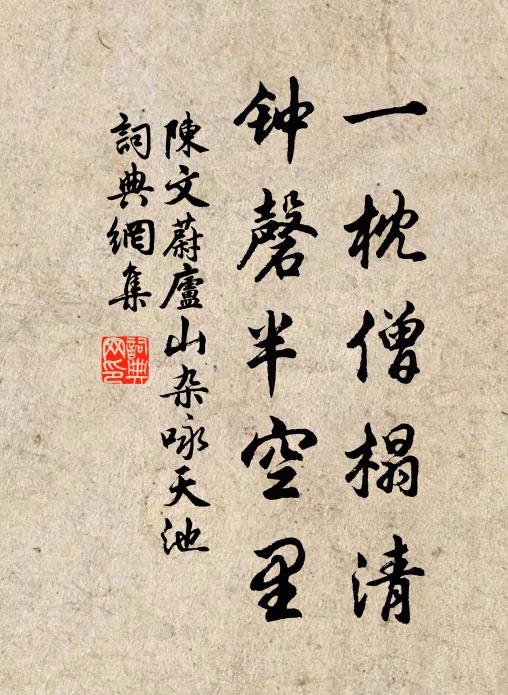 一枕僧榻清
钟磬半空里
陳文蔚廬山杂咏天池
詞典網集
詞典網印